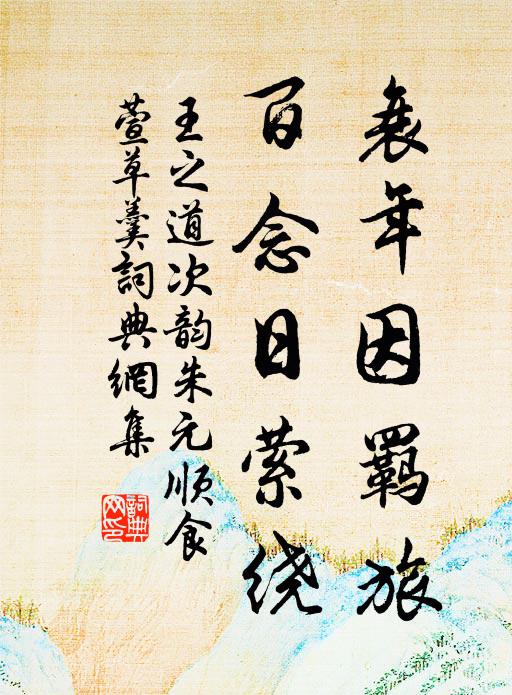 衰年因羁旅
百念日萦绕
王之道次韵朱元顺食
萱草羹詞典網集
詞典网印